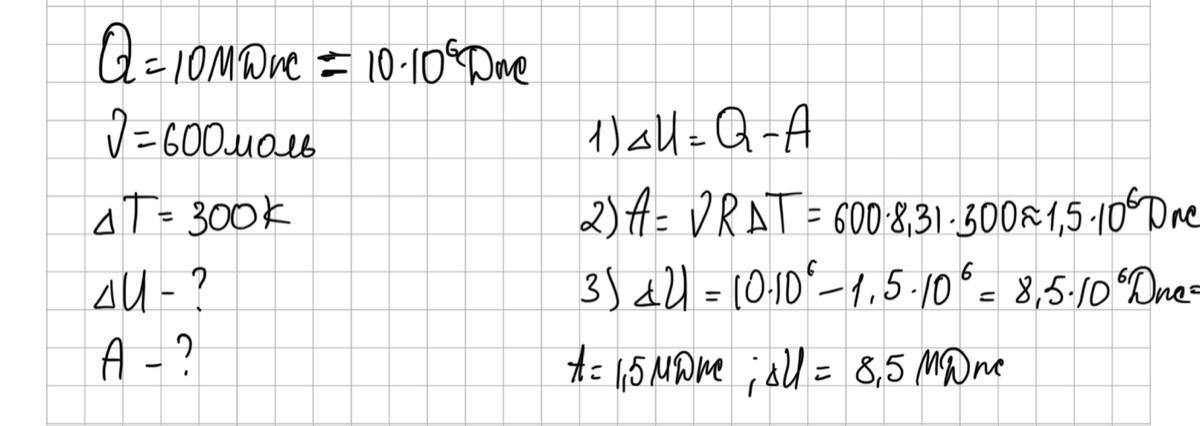 Q = 10 МДж = 10·10⁶ Дж
ν = 600 моль
ΔT = 300 К
ΔU - ?
A - ?
1) ΔU = Q - A
2) A = νRΔT = 600·8,31·300 ≈ 1,5·10⁶ Дж
3) ΔU = 10·10⁶ - 1,5·10⁶ = 8,5·10⁶ Дж =
A = 1,5 МДж ; ΔU = 8,5 МДж